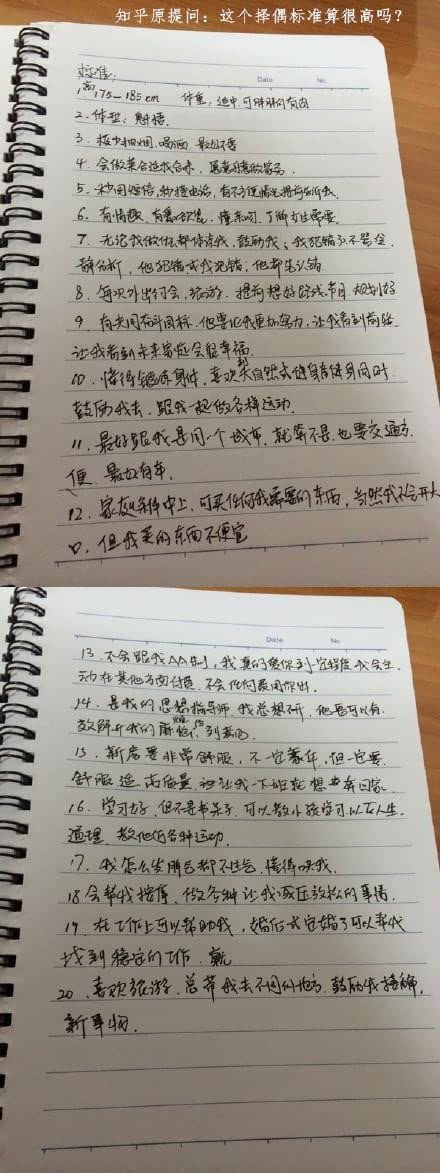 知乎原提问：这个择偶标准算很高吗？
标准：
Date No
1.高175—185cm 体重：适中.可胖胖的有肉
2.体型：魁梧.
3.极少抽烟.喝酒.最好不喝
4.会做菜合适我合味，愿意随意做家务.
5.秒回短信.秒接电话，有不方便情况提前告诉我.
6.有情趣.有喜欢.懂亲吻.了解女生需要.
7.无论我做什么都体谅我，鼓励我；我犯错了不骂会
静分析，他犯错或我犯错，他都先认错.
8.每次外出约会，旅游.提前想好路线.节目.规划好
9.有共同奋斗目标.他要比我更加努力，让我看到前途.
让我看到未来家庭会很幸福.
10.懂得锻炼身体，喜欢到大自然或健身房健身同时.
鼓励我去.跟我一起做各种运动.
11.最好跟我是同一个城市.就算不是.也要交通方
便.最好有车.
12.家庭条件中上，可买任何我需要的东西，当然我不会开大
口.但我买的东西不便宜
Date No
13.不会跟我AA制，我真的爱你到一定程度我会主
动在其他方面付费.不会任何费用你出.
14.是我的思想指导师.我总想不开.他要可以有
效解开我的麻烦，到疏通
15.新房要非常舒服，不一定豪华，但一定要
舒服适.高质量.让我一下班就想奔回家.
16.学习好，但不是书呆子.可以教小孩学习以及人生
道理.教他们各种运动.
17.我怎么发脾气都不生气.懂得哄我.
18会帮我按摩.做各种让我减压放松的事情.
19.在工作上可以帮助我，婚后或定婚了可以帮我
找到稳定的工作.
20.喜欢旅游.总带我去不同的地方.鼓励我接触.
新事物.